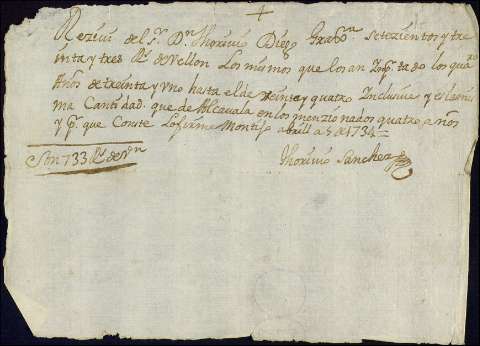 +
Rezivi del Sr. Dn. Thorivio Diego setezientos y tre
inta y tres Rs. de Vellon Los mismos que los quatro
Años de treinta y Uno hasta el de treinta y quatro Inclusive y es la mis
ma Cantidad que de Alcavala en los menzionados quatro años
y pa. que Conste Lo firme a 5 de 1734
Son 733 Rs. de Vn
Thorivio Sanchez